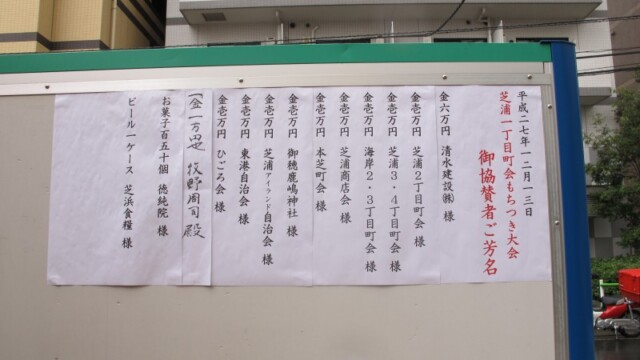 平成二七年一二月一三日
芝浦一丁目町会もちつき大会
御協賛者ご芳名
金六万円 清水建設㈱ 様
金壱万円 芝浦2丁目町会 様
金壱万円 芝浦3・4丁目町会 様
金壱万円 海岸2・3丁目町会 様
金壱万円 芝浦商店会 様
金壱万円 本芝町会 様
金壱万円 御穂鹿嶋神社 様
金壱万円 芝浦アイランド自治会 様
金壱万円 東港自治会 様
金壱万円 ひごろ会 様
金一万円也 牧野周司殿
お菓子百五十個 徳純院 様
ビール一ケース 芝浜食糧 様